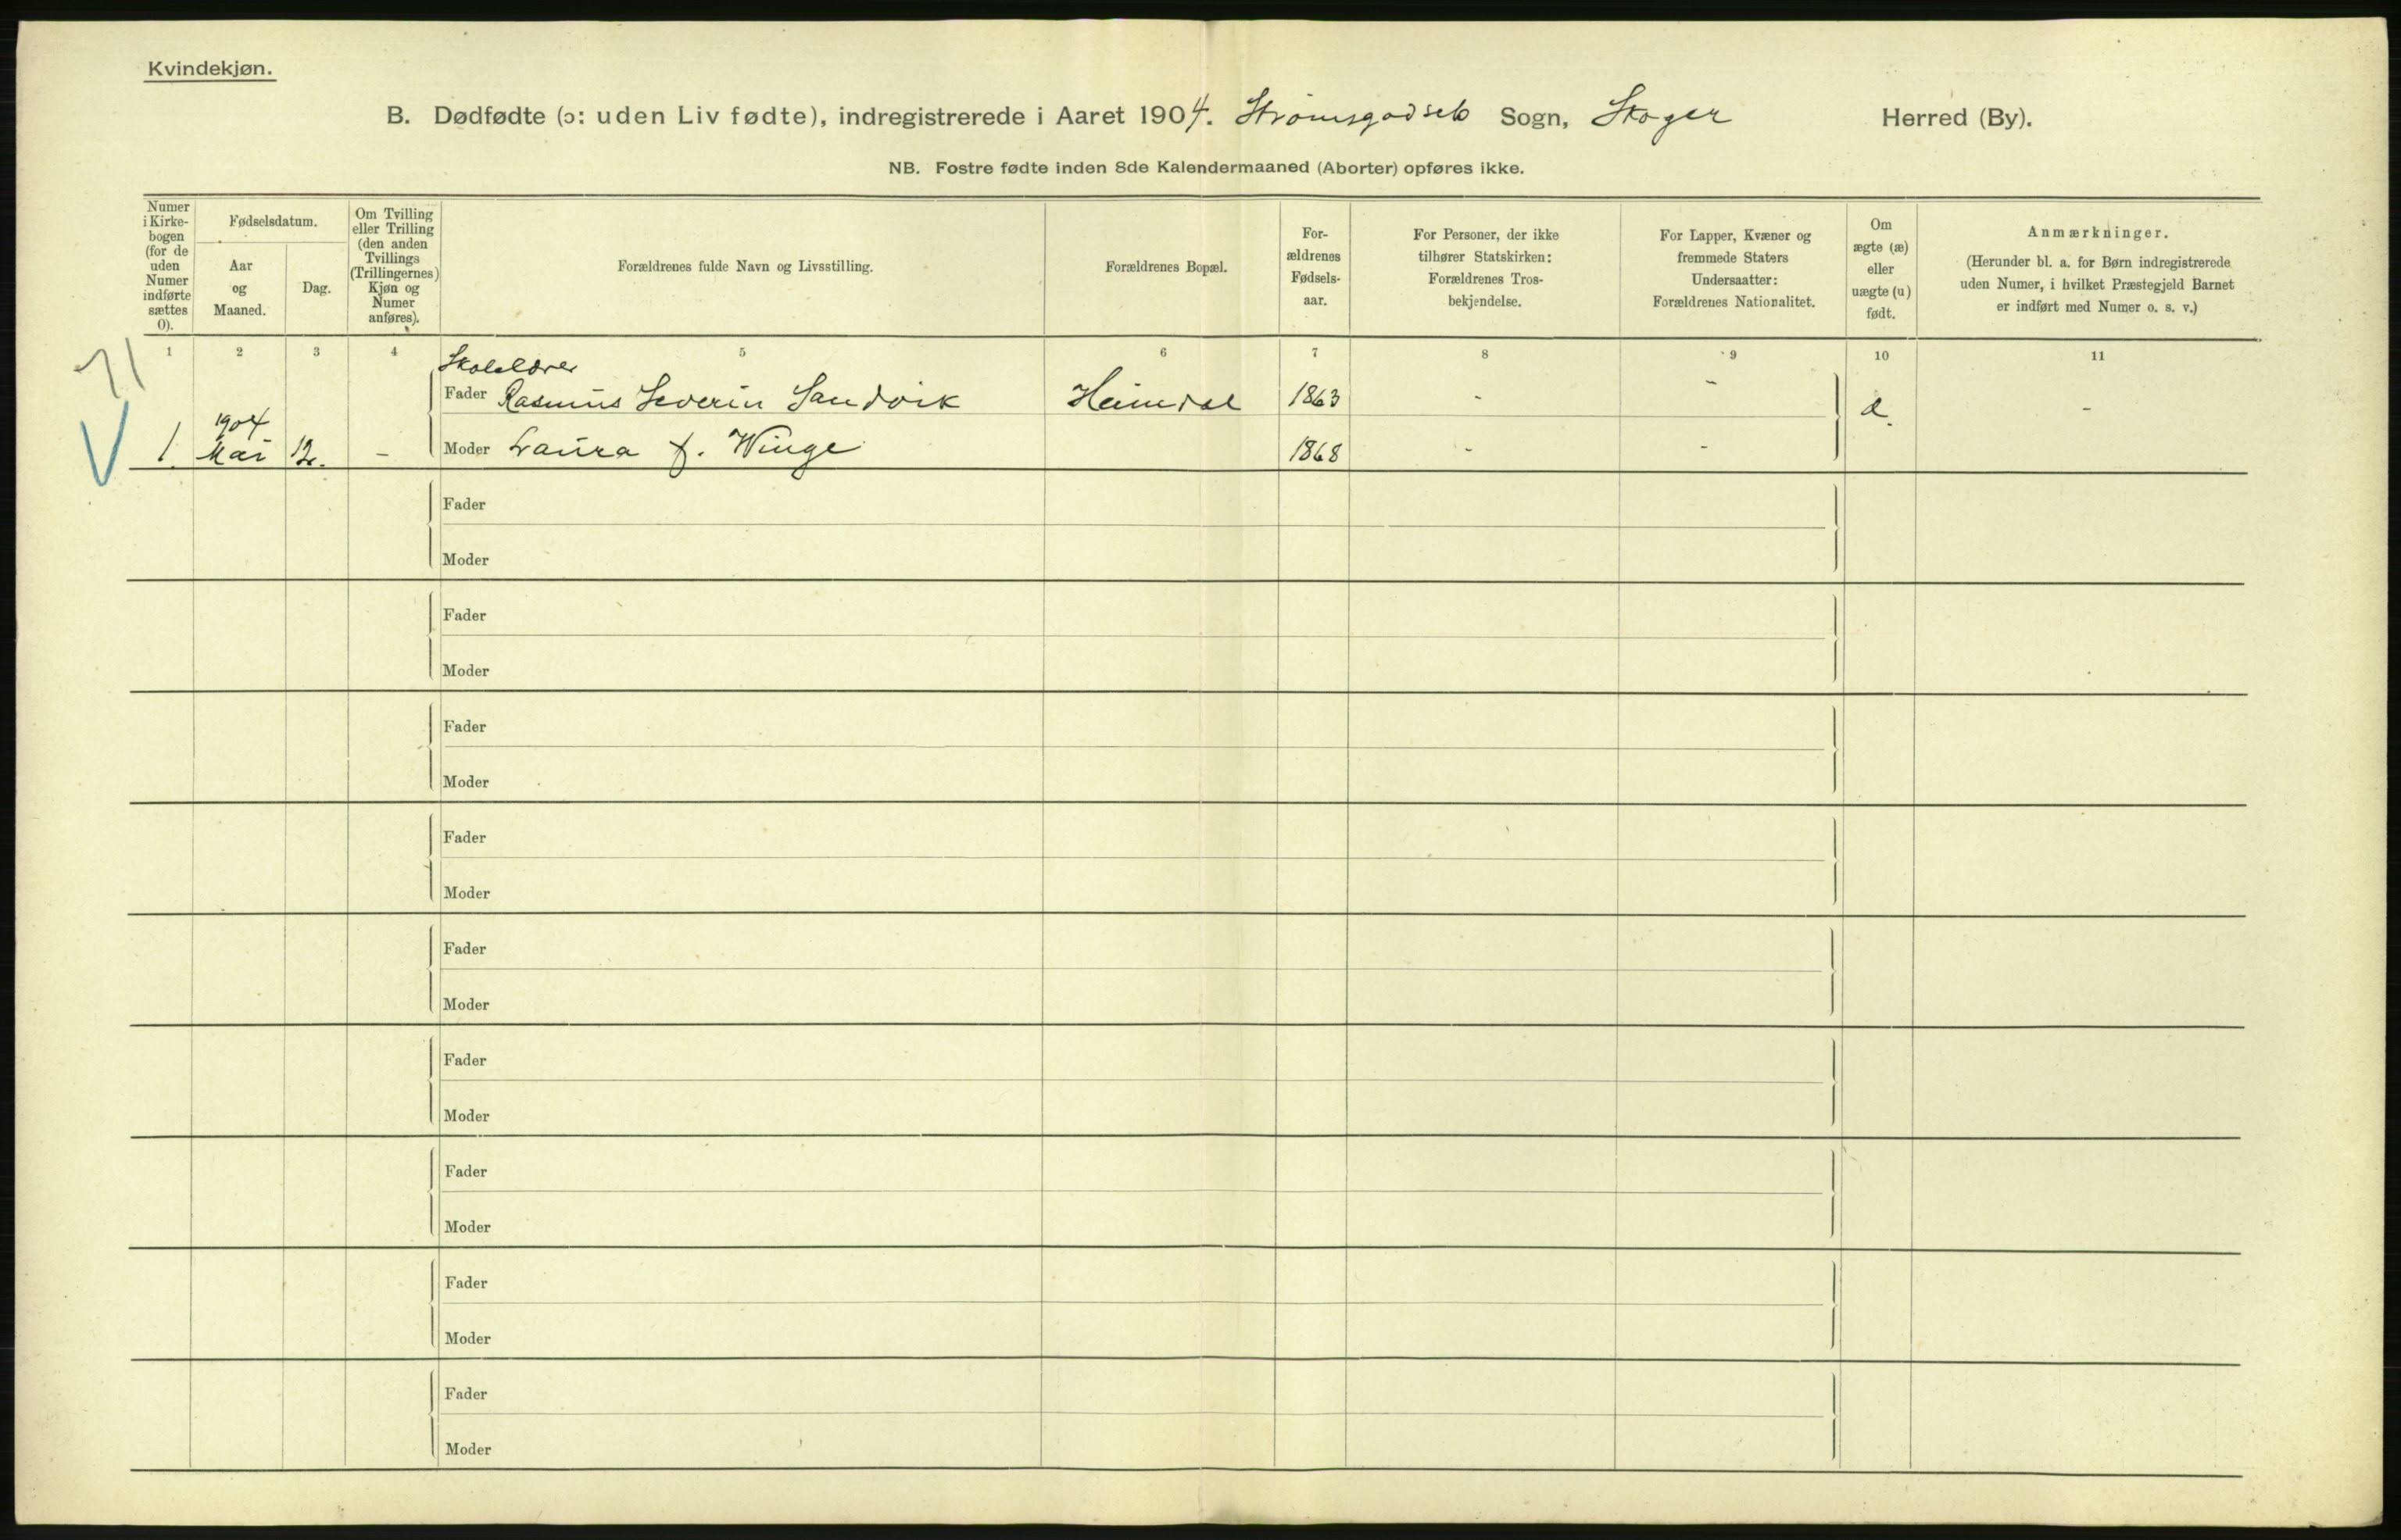 Kvindekjøn.
B. Dødfødte (ɔ: uden Liv fødte), indregistrerede i Aaret 1904. Strømsgodsets Sogn, Skoger Herred (By).
NB. Fostre fødte inden 8de Kalendermaaned (Aborter) opføres ikke.
Numer
i Kirke-
bogen
(for de
uden
Numer
indførte
sættes
0).
Fødselsdatum.
Aar
og
Maaned.
Dag.
Om Tvilling
eller Trilling
(den anden
Tvillings
(Trillingernes)
Kjøn og
Numer
anføres).
Forældrenes fulde Navn og Livsstilling.
Forældrenes Bopæl.
For-
ældrenes
Fødsels-
aar.
For Personer, der ikke
tilhører Statskirken:
Forældrenes Tros-
bekjendelse.
For Lapper, Kvæner og
fremmede Staters
Undersaatter:
Forældrenes Nationalitet.
Om
ægte (æ)
eller
uægte (u)
født.
Anmærkninger.
(Herunder bl. a. for Børn indregistrerede
uden Numer, i hvilket Præstegjeld Barnet
er indført med Numer o. s. v.)
1 2 3 4 5 6 7 8 9 10 11
Skolelærer
Fader Rasmus Severin Sandvik Heimdal 1863 - - æ. -
1904
1. Mai 12. - Moder Laura f. Winge 1868 - -
Fader
Moder
Fader
Moder
Fader
Moder
Fader
Moder
Fader
Moder
Fader
Moder
Fader
Moder
Fader
Moder
Fader
Moder